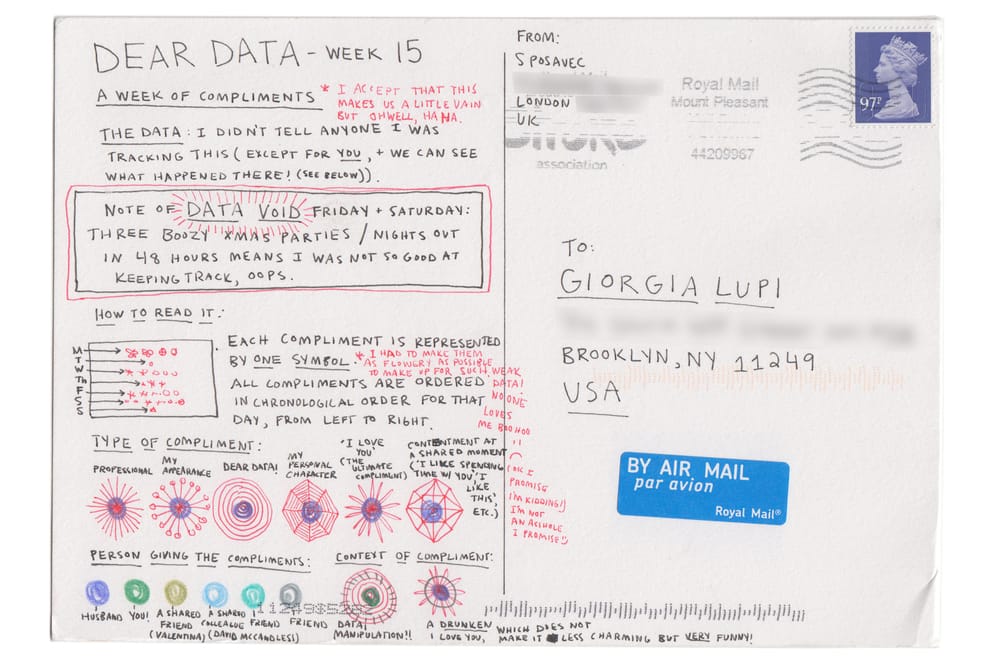 DEAR DATA - WEEK 15
A WEEK OF COMPLIMENTS
* I ACCEPT THAT THIS
MAKES US A LITTLE VAIN
BUT OHWELL, HA HA.
THE DATA: I DIDN'T TELL ANYONE I WAS
TRACKING THIS (EXCEPT FOR YOU, + WE CAN SEE
WHAT HAPPENED THERE! (SEE BELOW)).
NOTE OF DATA VOID FRIDAY + SATURDAY:
THREE BOOZY XMAS PARTIES / NIGHTS OUT
IN 48 HOURS MEANS I WAS NOT SO GOOD AT
KEEPING TRACK, OOPS.
HOW TO READ IT:
M
T
W
Th
F
S
S
EACH COMPLIMENT IS REPRESENTED
BY ONE SYMBOL.
ALL COMPLIMENTS ARE ORDERED
IN CHRONOLOGICAL ORDER FOR THAT
DAY, FROM LEFT TO RIGHT.
* I HAD TO MAKE THEM
AS FLOWERY AS POSSIBLE
TO MAKE UP FOR SUCH WEAK
DATA!
NO ONE
LOVES
ME BOO HOO
(OK I
PROMISE
I'M KIDDING!)
I'M NOT
AN ASSHOLE
I PROMISE
TYPE OF COMPLIMENT:
PROFESSIONAL
MY
APPEARANCE
DEAR DATA!
MY
PERSONAL
CHARACTER
'I LOVE
YOU'
(THE
ULTIMATE
COMPLIMENT)
CONTENTMENT AT
A SHARED MOMENT
('I LIKE SPENDING
TIME W/ YOU', 'I
LIKE
THIS',
ETC.)
PERSON GIVING THE COMPLIMENTS:
HUSBAND
YOU!
A SHARED
FRIEND
(VALENTINA)
A SHARED
COLLEAGUE
(DAVID MCCANDLESS)
FRIEND
FRIEND
CONTEXT OF COMPLIMENT:
DATA
MANIPULATION!!
A DRUNKEN
I LOVE YOU,
WHICH DOES NOT
MAKE IT LESS CHARMING BUT VERY FUNNY!
FROM:
S POSAVEC
LONDON
UK
association
Royal Mail
Mount Pleasant
44209967
97P
TO:
GIORGIA LUPI
BROOKLYN, NY 11249
USA
BY AIR MAIL
par avion
Royal Mail®